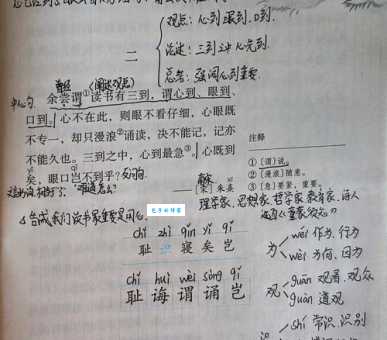 二
观点：心到眼到、口到。
论述：三到之中心先到
总看：强调心到重要
曾经
（阐述观点）
中心句
余尝谓①读书有三到，谓心到、眼到、
口到。心不在此，则眼不看仔细，心眼既
不专一，却只漫浪②诵读，决不能记，记亦
不能久也。三到之中，心到最急③。心既到
矣，眼口岂不到乎？反问句
难道
——［宋］朱熹
注释
①〔谓〕说。
②〔漫浪〕随意。
③〔急〕要紧，重要。
理学家、思想家、哲学家、教育家、诗人
chǐ zhì qǐn yǐ qǐ
耻 识 寝 矣 岂
chǐ huì wèi sòng qǐ
耻 诲 谓 诵 岂
为
wéi 作为、行为
wèi 为何、因为
观
guān 观看、观众
guàn 道观
识
shí 常识、识别